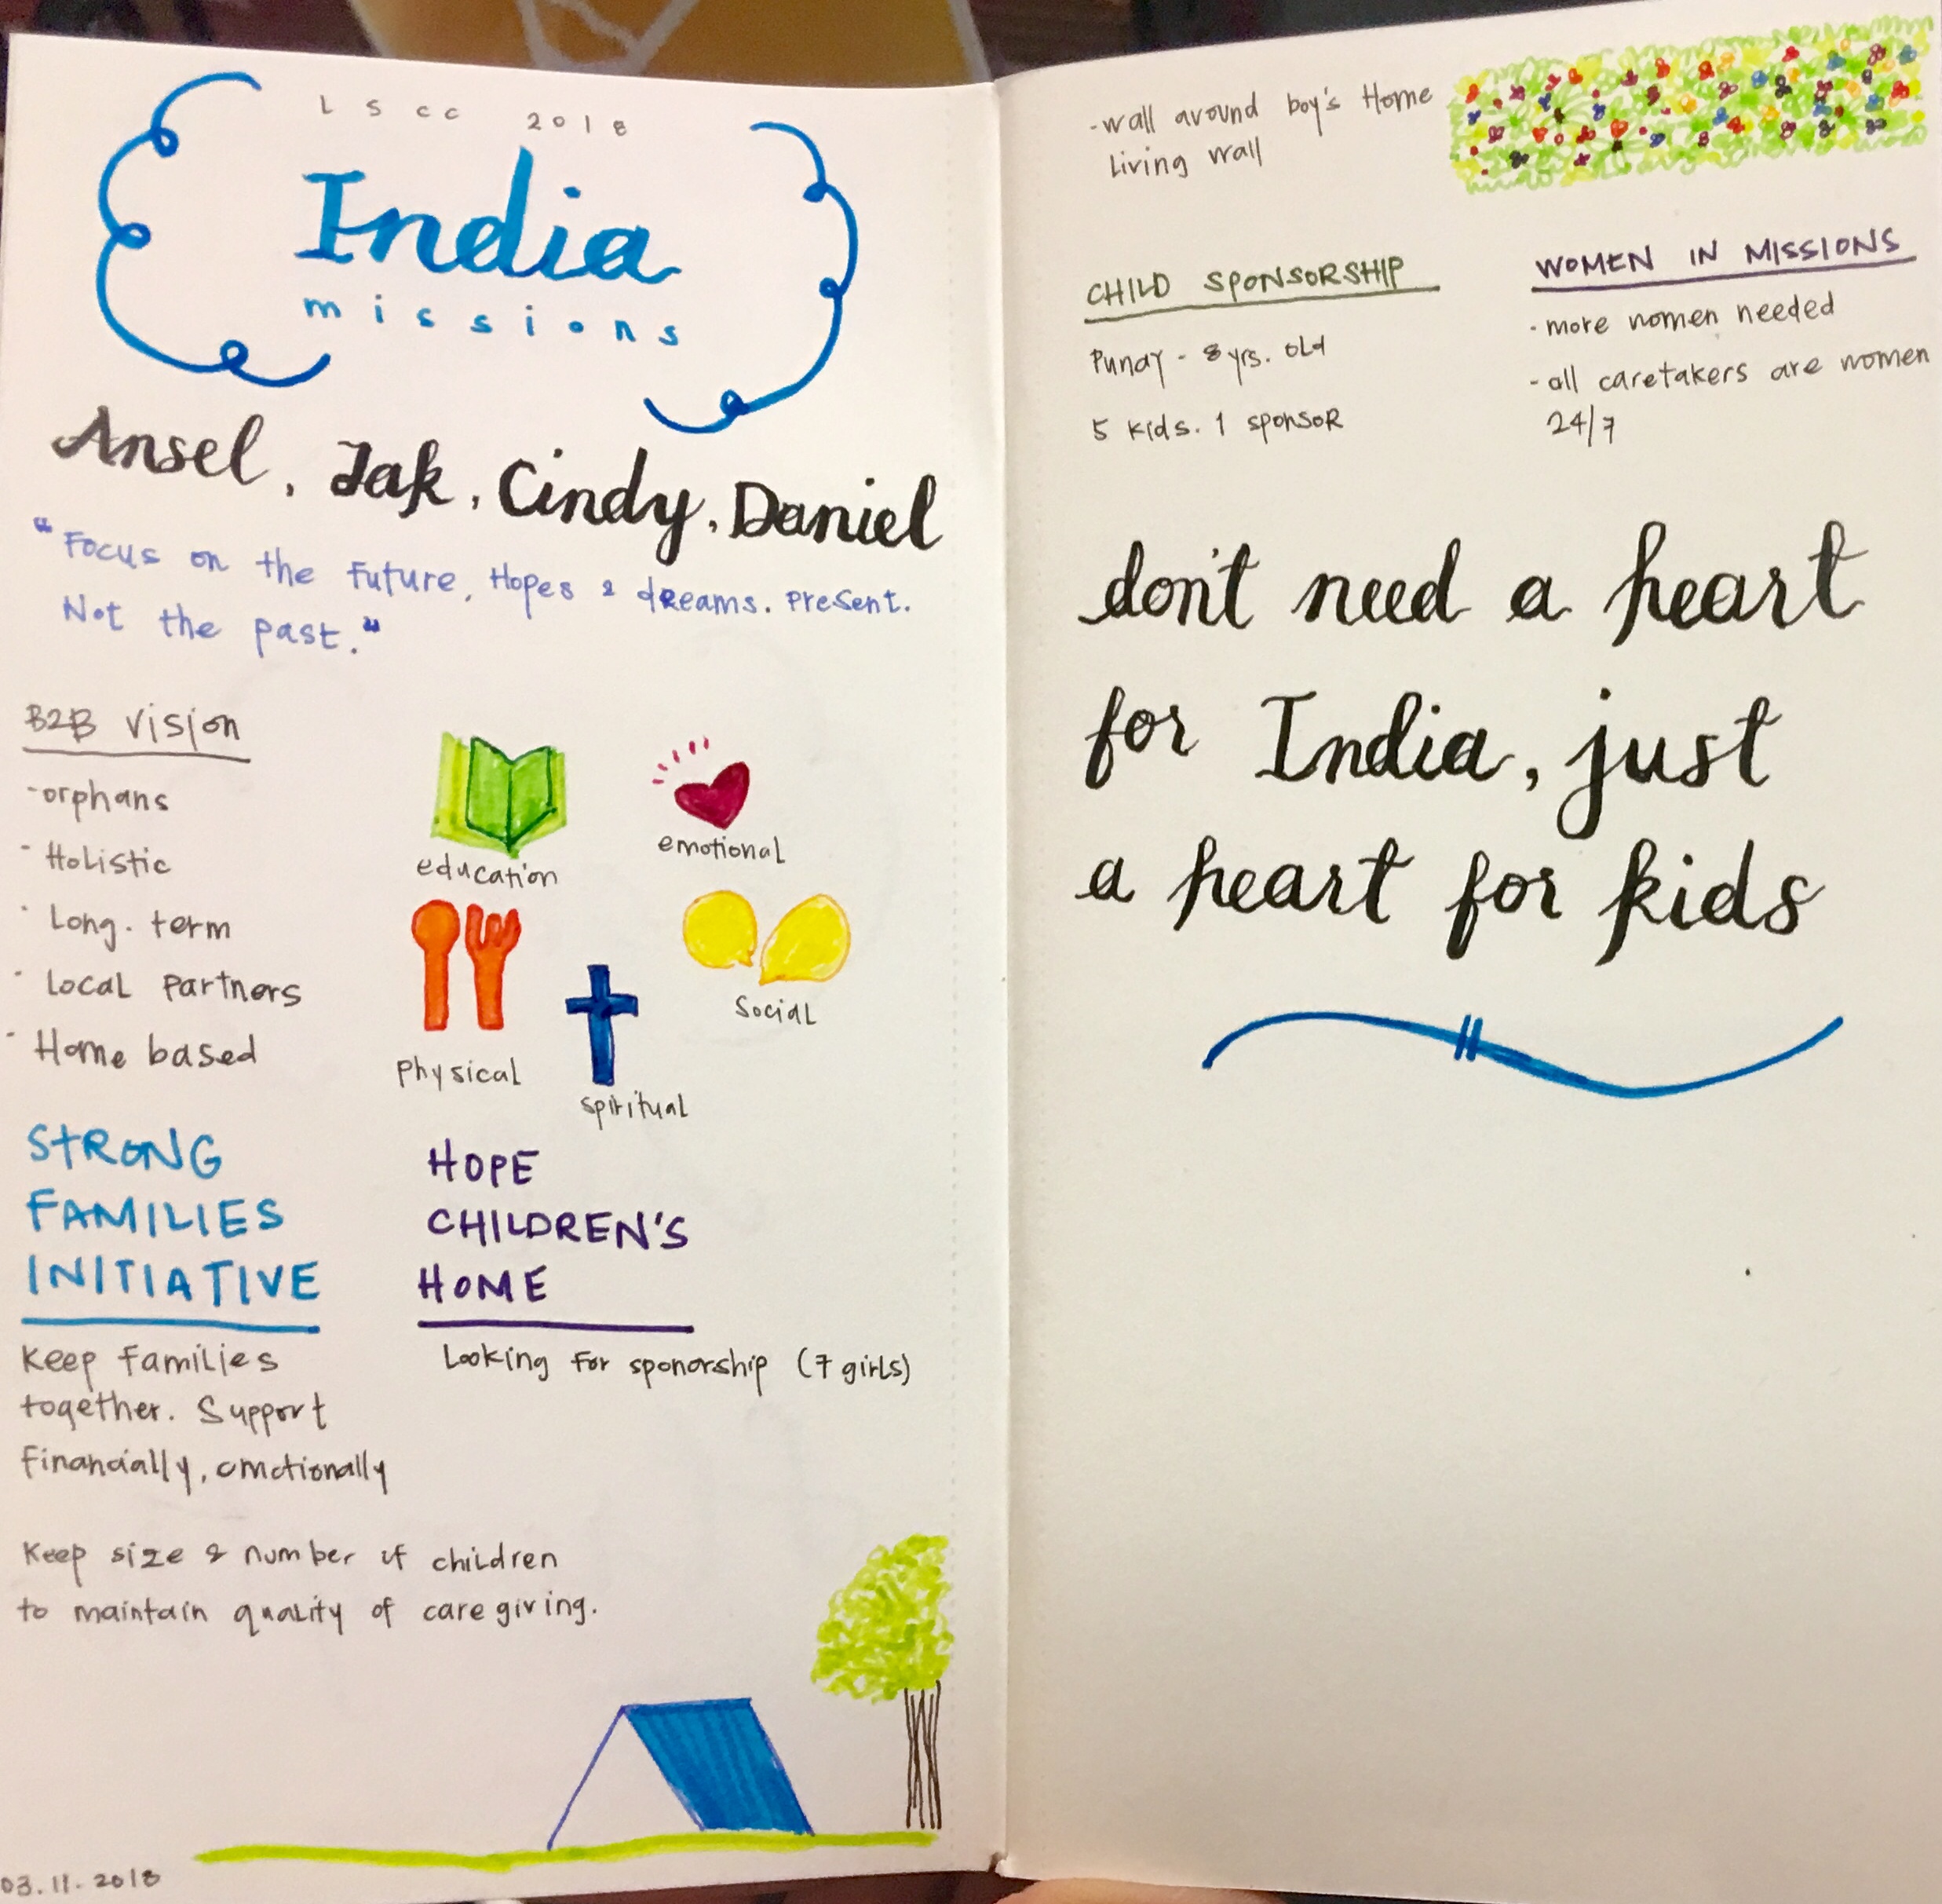 LSCC 2018
India
missions
Ansel, Jak, Cindy, Daniel
"Focus on the Future, Hopes & dreams. Present.
Not the past."
B2B Vision
-orphans
- Holistic
· Long-term
· Local Partners
· Home based
education
emotional
Physical
Social
spiritual
STRONG
FAMILIES
INITIATIVE
Keep Families
together. Support
Financially, emotionally
HOPE
CHILDREN'S
HOME
Looking For sponorship (7 girls)
Keep size & number of children
to maintain quality of care giving.
03.11.2018
-wall around boy's Home
Living wall
CHILD SPONSORSHIP
Punay - 8 yrs. old
5 kids. 1 sponsor
WOMEN IN MISSIONS
- more women needed
- all caretakers are women
24/7
don't need a heart
for India, just
a heart for kids